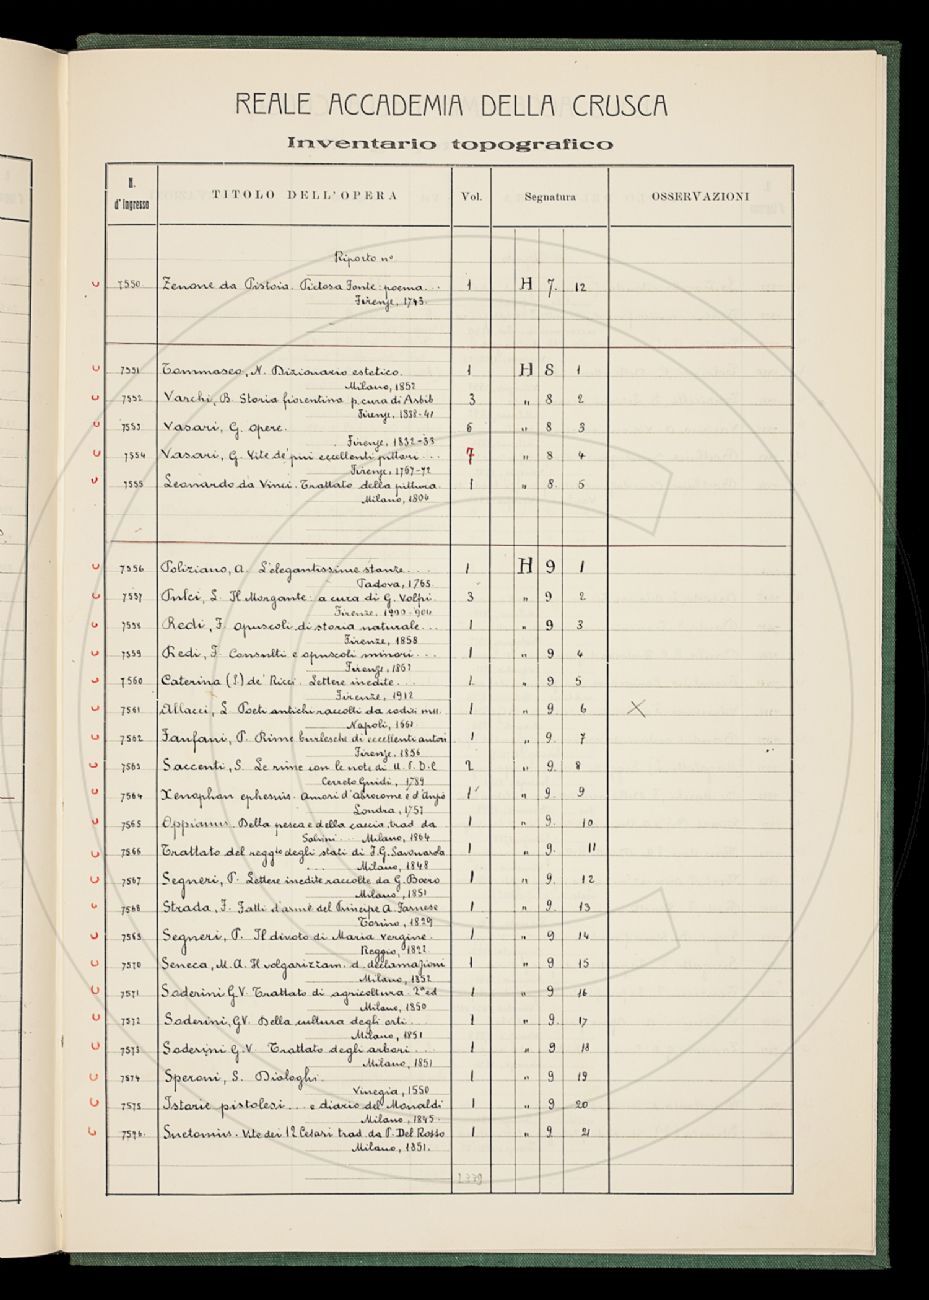 REALE ACCADEMIA DELLA CRUSCA
Inventario topografico
N. d'Ingresso TITOLO DELL'OPERA Vol. Segnatura OSSERVAZIONI
Riporto nº
7550 Zenone da Pistoia. Pietosa Fonte: poema... 1 H 7. 12
Firenze, 1743.
7551 Tommaseo, N. Dizionario estetico. 1 H 8 1
Milano, 1852
7552 Varchi, B. Storia fiorentina p. cura di Arbib 3 " 8 2
Firenze, 1838-41
7553 Vasari, G. opere. 6 " 8 3
Firenze, 1832-38
7554 Vasari, G. Vite de' più eccellenti pittori... 7 " 8 4
Firenze, 1767-72
7555 Leonardo da Vinci. Trattato della pittura. 1 " 8. 5
Milano, 1804
7556 Poliziano, A. L'elegantissime stanze.... 1 H 9 1
Padova, 1765.
7557 Pulci, L. Il Morgante: a cura di G. Volpi. 3 " 9 2
Firenze, 1900-904
7558 Redi, F. opuscoli di storia naturale... 1 " 9 3
Firenze, 1858
7559 Redi, F. Consulti e opuscoli minori... 1 " 9 4
Firenze, 1863
7560 Caterina (S) de' Ricci. Lettere inedite... 1 " 9 5
Firenze, 1912
7561 Allacci, L. Poeti antichi raccolti da codici mss. 1 " 9. 6 X
Napoli, 1661
7562 Fanfani, P. Rime burlesche di eccellenti autori 1 " 9. 7
Firenze, 1856
7563 Saccenti, S. Le rime con le note di 2 " 9. 8
Cerreto Guidi, 1789
7564 Xenophon ephesius. Amori d'Abrocome e d'Anzia 1 " 9. 9
Londra, 1757
7565 Oppianus. Della pesca e della caccia, trad da 1 " 9. 10
Salvini... Milano, 1864
7566 Trattato del reggio degli stati di F. G. Savonarola 1 " 9. 11
... Milano, 1848
7567 Segneri, P. Lettere inedite raccolte da G. Boero 1 " 9. 12
Milano, 1851
7568 Strada, F. Fatti d'arme del Principe A. Farnese 1 " 9. 13
Torino, 1829
7569 Segneri, P. Il divoto di Maria Vergine. 1 " 9 14
Reggio, 1822
7570 Seneca, M. A. Il volgarizzam. d. declamazioni 1 " 9 15
Milano, 1832
7571 Soderini G.V. Trattato di agricoltura. 2ª ed 1 " 9 16
Milano, 1850
7572 Soderini, G.V. Della cultura degli orti... 1 " 9. 17
Milano, 1851
7573 Soderini G.V. Trattato degli arbori... 1 " 9 18
Milano, 1851
7574 Speroni, S. Dialoghi. 1 " 9 19
Vinegia, 1550
7575 Istorie pistolesi... e diario del Monaldi 1 " 9 20
Milano, 1845.
7576. Suetonius. Vite dei 12 Cesari trad. da P. Del Rosso 1 " 9. 21
Milano, 1851.
1339